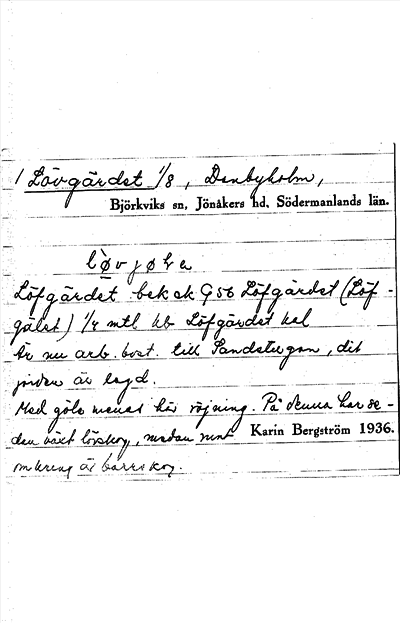 1 Lövgärdet 1/8, Danbyholm,
Björkviks sn, Jönåkers hd, Södermanlands län.
Löfgärdet bek ek G 56 Löfgärdet (Löf-
gälet) 1/4 mtl kb Löfgärdet hal
Är nu arb. bost. till Sandstugan, dit
jorden är lagd.
Med göle menas här röjning. På denna har se-
dan växt lövskog, medan runt
Karin Bergström 1936.
omkring är barrskog.